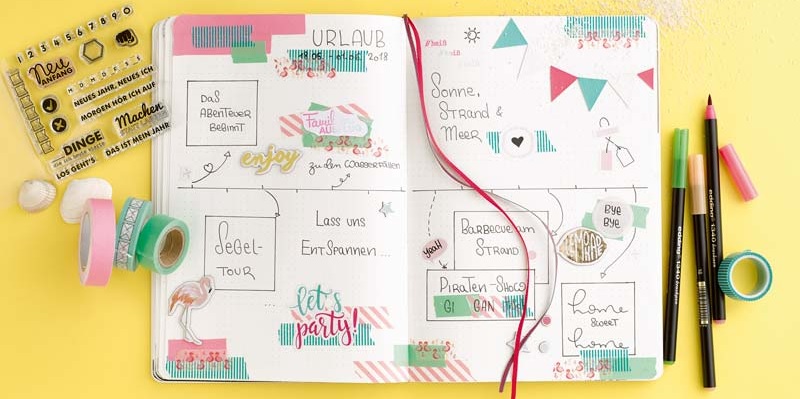 1 2 3 4 5 6 7 8 9 0
Neu
ANFANG
M D M D F S S
NEUES JAHR, NEUES ICH
MORGEN HÖR ICH AUF
Machen
DINGE
LOS GEHT'S.
DAS IST MEIN JAHR
URLAUB
18.05
01.06.2018
DAS
ABENTEUER
BEGINNT
enjoy
zu den Wasserfällen
SEGEL-
TOUR
Lass uns
ENTSPANNEN ...
let's
party!
#heiß
#heiß
Sonne,
STRAND &
MEER
BYE
BYE
yeah
BARBECUE AM
STRAND
PIRATEN-SHOW
GI GAN
home
SWEET
home
edding 1340
edding 1340